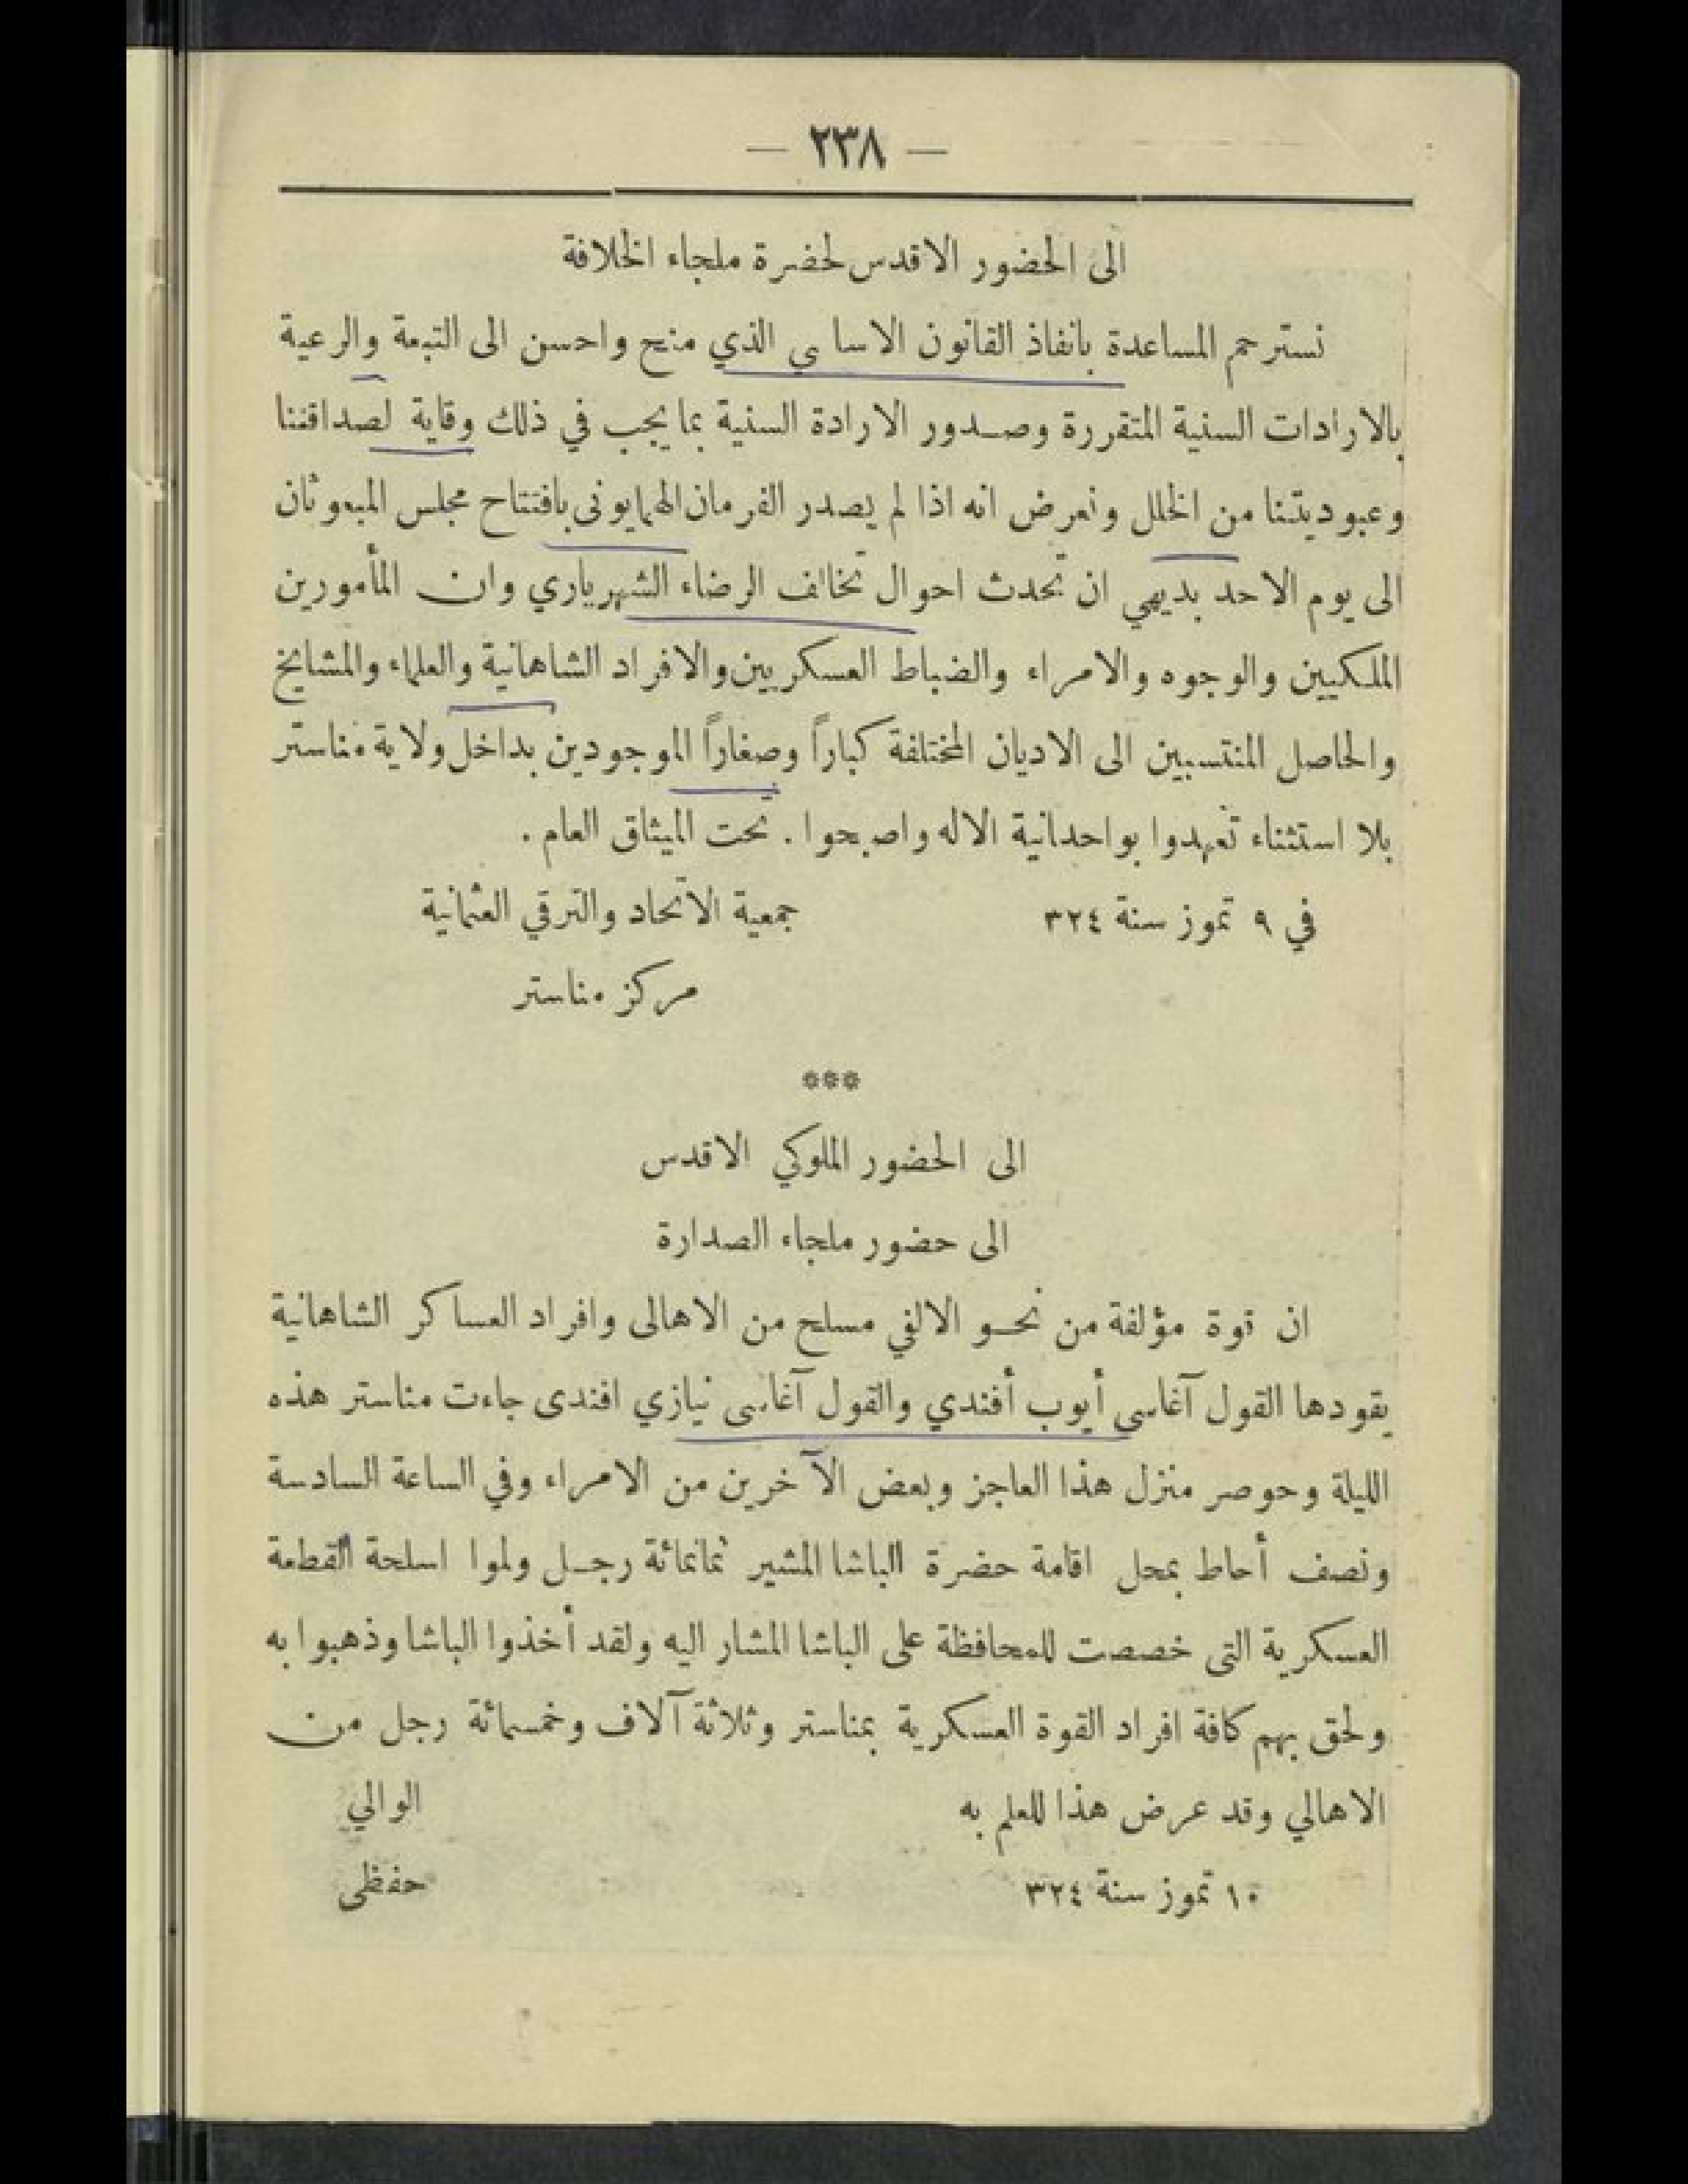 — ٢٣٨ —
الى الحضور الاقدس لحضرة ملجاء الخلافة
نسترحم المساعدة بانفاذ القانون الاساسي الذي منح واحسن الى التبعة والرعية
بالارادات السنية المتقررة وصدور الارادة السنية بما يجب في ذلك وقاية لصداقتنا
وعبوديتنا من الخلل ونعرض انه اذا لم يصدر الفرمان الهمايونى بافتتاح مجلس المبعوثان
الى يوم الاحد بديهي ان تحدث احوال تخالف الرضاء الشهرياري وان المأمورين
الملكيين والوجوه والامراء والضباط العسكريين والافراد الشاهانية والعلماء والمشايخ
والحاصل المنتسبين الى الاديان المختلفة كباراً وصغاراً الموجودين بداخل ولاية مناستر
بلا استثناء تعهدوا بواحدانية الاله واصبحوا . تحت الميثاق العام .
في ٩ تموز سنة ٣٢٤ جمعية الاتحاد والترقي العثمانية
مركز مناستر
***
الى الحضور الملوكي الاقدس
الى حضور ملجاء الصدارة
ان قوة مؤلفة من نحو الالفي مسلح من الاهالى وافراد العساكر الشاهانية
يقودها القول آغاسى أيوب أفندي والقول آغاسى نيازي افندى جاءت مناستر هذه
الليلة وحوصر منزل هذا العاجز وبعض الآخرين من الامراء وفي الساعة السادسة
ونصف أحاط بمحل اقامة حضرة الباشا المشير ثمانمائة رجل ولموا اسلحة القطعة
العسكرية التى خصصت للمحافظة على الباشا المشار اليه ولقد أخذوا الباشا وذهبوا به
ولحق بهم كافة افراد القوة العسكرية بمناستر وثلاثة آلاف وخمسمائة رجل من
الاهالي وقد عرض هذا للعلم به الوالي
١٠ تموز سنة ٣٢٤ حفظى